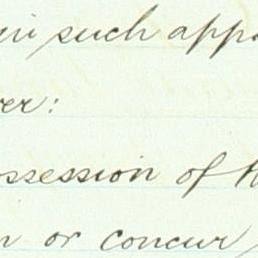 in such appo
er:
ossession of th
n or concur